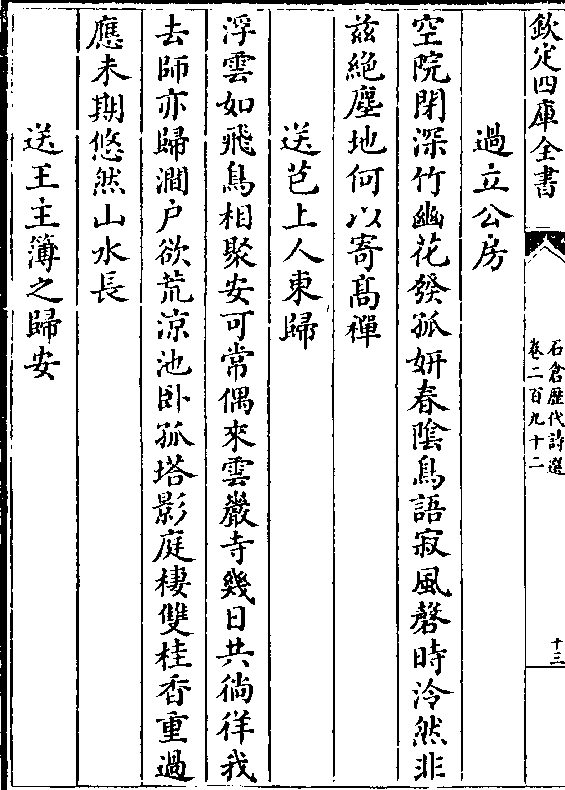 欽定四庫全書
石倉歷代詩選
卷二百九十二
十三
過立公房
空院閉深竹幽花發孤妍春陰鳥語寂風磬時泠然非
兹絶塵地何以寄髙禪
送芑上人東歸
浮雲如飛鳥相聚安可常偶來雲巖寺幾日共徜徉我
去師亦歸澗户欲荒涼池卧孤塔影庭棲雙桂香重過
應未期悠然山水長
送王主簿之歸安